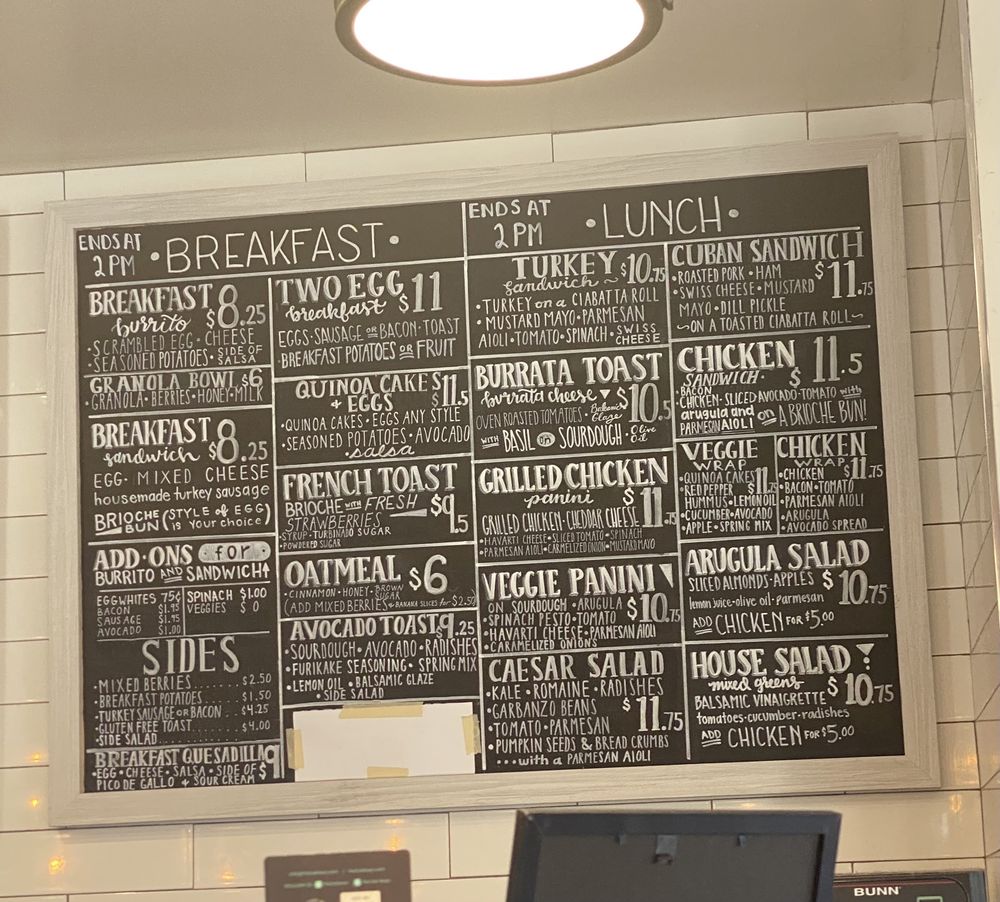 ENDS AT
2 PM
•BREAKFAST•
BREAKFAST
burrito $8.25
•SCRAMBLED EGG•CHEESE
•SEASONED POTATOES•SIDE OF SALSA
GRANOLA BOWL $6
•GRANOLA•BERRIES•HONEY•MILK
BREAKFAST
sandwich $8.25
EGG•MIXED CHEESE
housemade turkey sausage
BRIOCHE BUN (STYLE of EGG is your choice)
ADD•ONS for
BURRITO AND SANDWICH
EGGWHITES 75¢
BACON $1.95
SAUSAGE $1.95
AVOCADO $1.00
SPINACH $1.00
VEGGIES $ 0
SIDES
•MIXED BERRIES ...... $2.50
•BREAKFAST POTATOES ..... $1.50
•TURKEY SAUSAGE OR BACON .. $4.25
•GLUTEN FREE TOAST .... $4.00
•SIDE SALAD
BREAKFAST QUESADILLA $9
•EGG•CHEESE•SALSA•SIDE OF
PICO DE GALLO & SOUR CREAM
TWO EGG
breakfast $11
EGGS•SAUSAGE OR BACON•TOAST
BREAKFAST POTATOES OR FRUIT
QUINOA CAKES
& EGGS $11.5
•QUINOA CAKES•EGGS ANY STYLE
•SEASONED POTATOES•AVOCADO
•salsa
FRENCH TOAST
BRIOCHE with FRESH
STRAWBERRIES $9.5
•SYRUP•TURBINADO SUGAR
•POWDERED SUGAR
OATMEAL $6
•CINNAMON•HONEY•BROWN SUGAR
(ADD MIXED BERRIES & BANANA SLICES for $2.50
AVOCADO TOAST $9.25
SOURDOUGH•AVOCADO•RADISHES
•FURIKAKE SEASONING•SPRING MIX
•LEMON OIL•BALSAMIC GLAZE
•SIDE SALAD
ENDS AT
2 PM
•LUNCH•
TURKEY
sandwich~ $10.75
•TURKEY on a CIABATTA ROLL
•MUSTARD MAYO•PARMESAN
AIOLI•TOMATO•SPINACH•SWISS CHEESE
BURRATA TOAST
burrata cheese $10.5
OVEN ROASTED TOMATOES•Balsamic Glaze
WITH BASIL on SOURDOUGH•Olive Oil
GRILLED CHICKEN
panini $11.75
GRILLED CHICKEN•CHEDDAR CHEESE
•HAVARTI CHEESE•SLICED TOMATO•SPINACH
PARMESAN AIOLI•CARMELIZED ONION•MUSTARD MAYO
VEGGIE PANINI
ON SOURDOUGH•ARUGULA $10.75
•SPINACH PESTO•TOMATO
•HAVARTI CHEESE•PARMESAN AIOLI
•CARAMELIZED ONIONS
CAESAR SALAD
•KALE•ROMAINE•RADISHES
•GARBANZO BEANS $11.75
•TOMATO•PARMESAN
•PUMPKIN SEEDS & BREAD CRUMBS
...with a PARMESAN AIOLI
CUBAN SANDWICH
•ROASTED PORK•HAM $11.75
•SWISS CHEESE•MUSTARD
MAYO•DILL PICKLE
~ON A TOASTED CIABATTA ROLL~
CHICKEN $11.5
SANDWICH•
•BACON
CHICKEN•SLICED AVOCADO•TOMATO with
arugula and
PARMESAN AIOLI on A BRIOCHE BUN!
VEGGIE
WRAP
•QUINOA CAKES $11.75
RED PEPPER
HUMMUS•LEMON OIL
•CUCUMBER•AVOCADO
•APPLE•SPRING MIX
CHICKEN
WRAP $11.75
•CHICKEN
•BACON•TOMATO
•PARMESAN AIOLI
•ARUGULA
•AVOCADO SPREAD
ARUGULA SALAD
SLICED ALMONDS•APPLES $10.75
lemon juice•olive oil•parmesan
ADD CHICKEN FOR $5.00
HOUSE SALAD
mixed greens $10.75
BALSAMIC VINAIGRETTE
tomatoes•cucumber•radishes
ADD CHICKEN FOR $5.00
BUNN